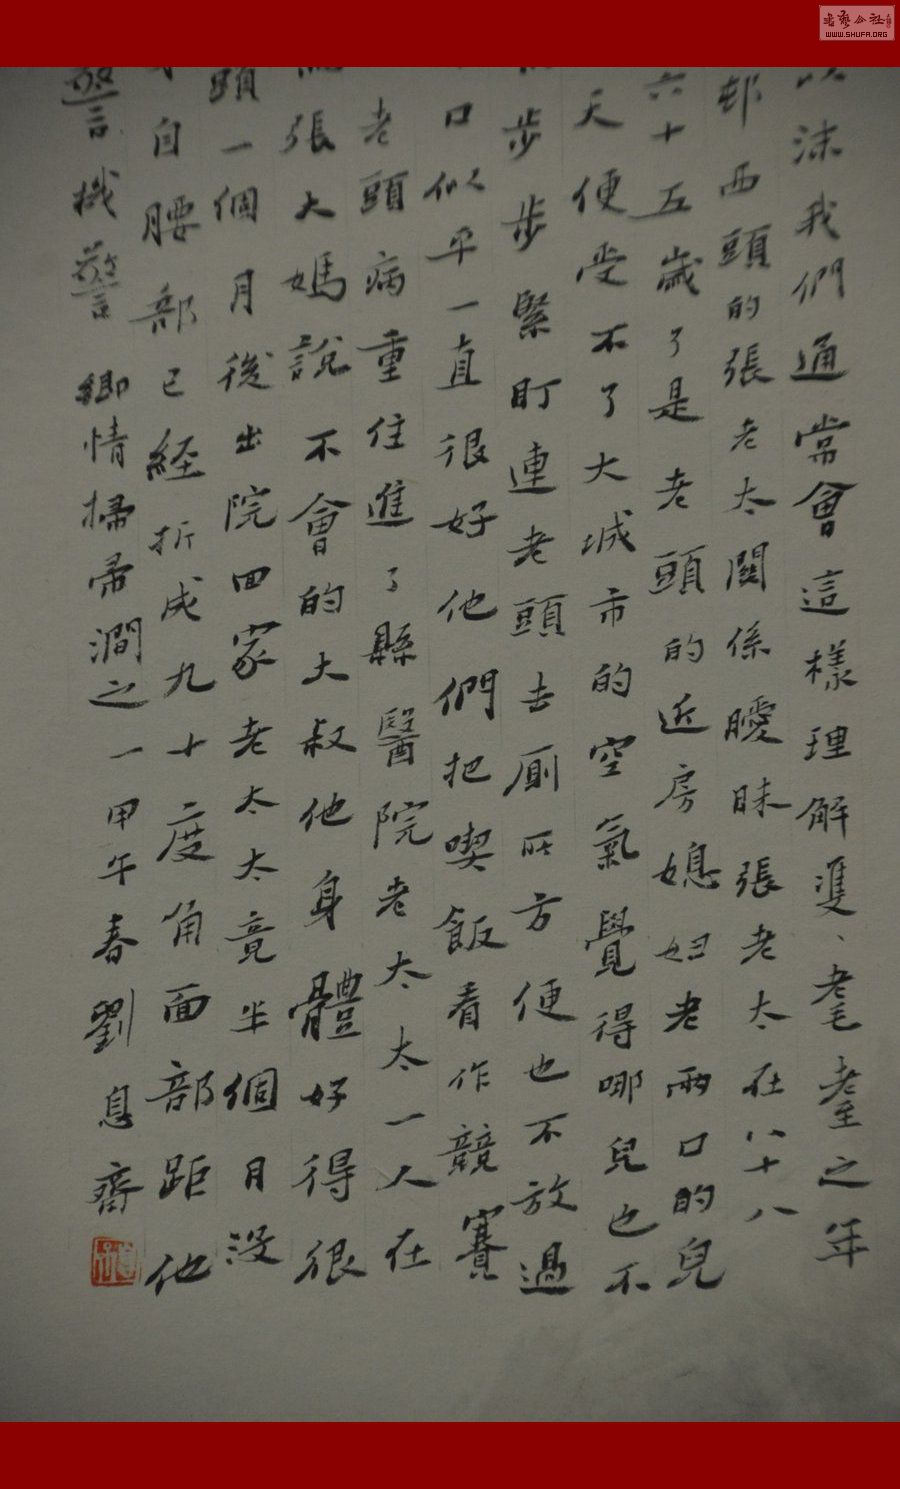 沫我們通常會這樣理解雙、耄耋之年
邨西頭的張老太關係曖昧張老太在八十八
六十五歲了是老頭的近房媳妇老兩口的兒
天便受不了大城市的空氣覺得哪兒也不
步步緊盯連老頭去廁所方便也不放過
口似乎一直很好他們把喫飯看作競賽
老頭病重住進了縣醫院老太太一人在
張大媽說不會的大叔他身體好得很
頭一個月後出院回家老太太竟半個月没
自腰部已经折成九十度角面部距他
警機警 鄉情掃帚澗之一甲午春劉息齋
書藝公社
WWW.SHUFA.ORG